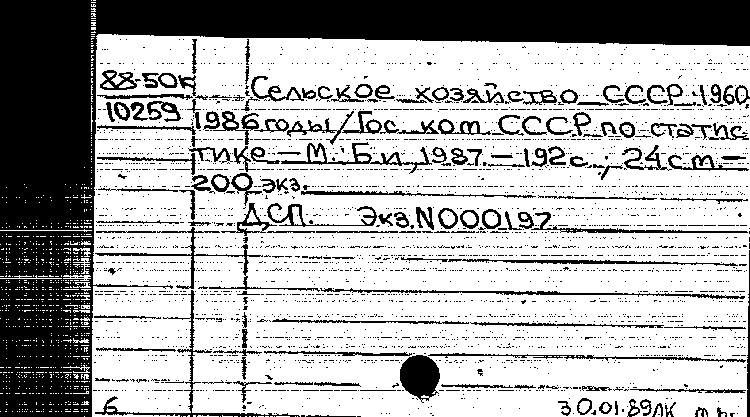 88-50к Сельское хозяйство СССР 1960
10259 1986 годы / Гос. ком СССР по статис
тике. — М.: Б.и., 1987. — 192 с.; 24 см. —
200 экз.
ДСП. Экз. N000197
6 30.01.89